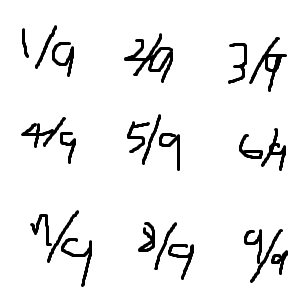 1/9 2/9 3/9
4/9 5/9 6/9
7/9 8/9 9/9